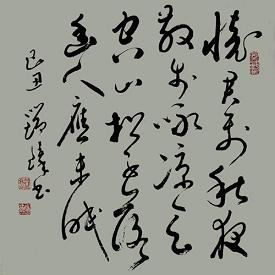 懷君属秋夜
散步咏凉天
空山松子落
幽人應未眠
己丑書